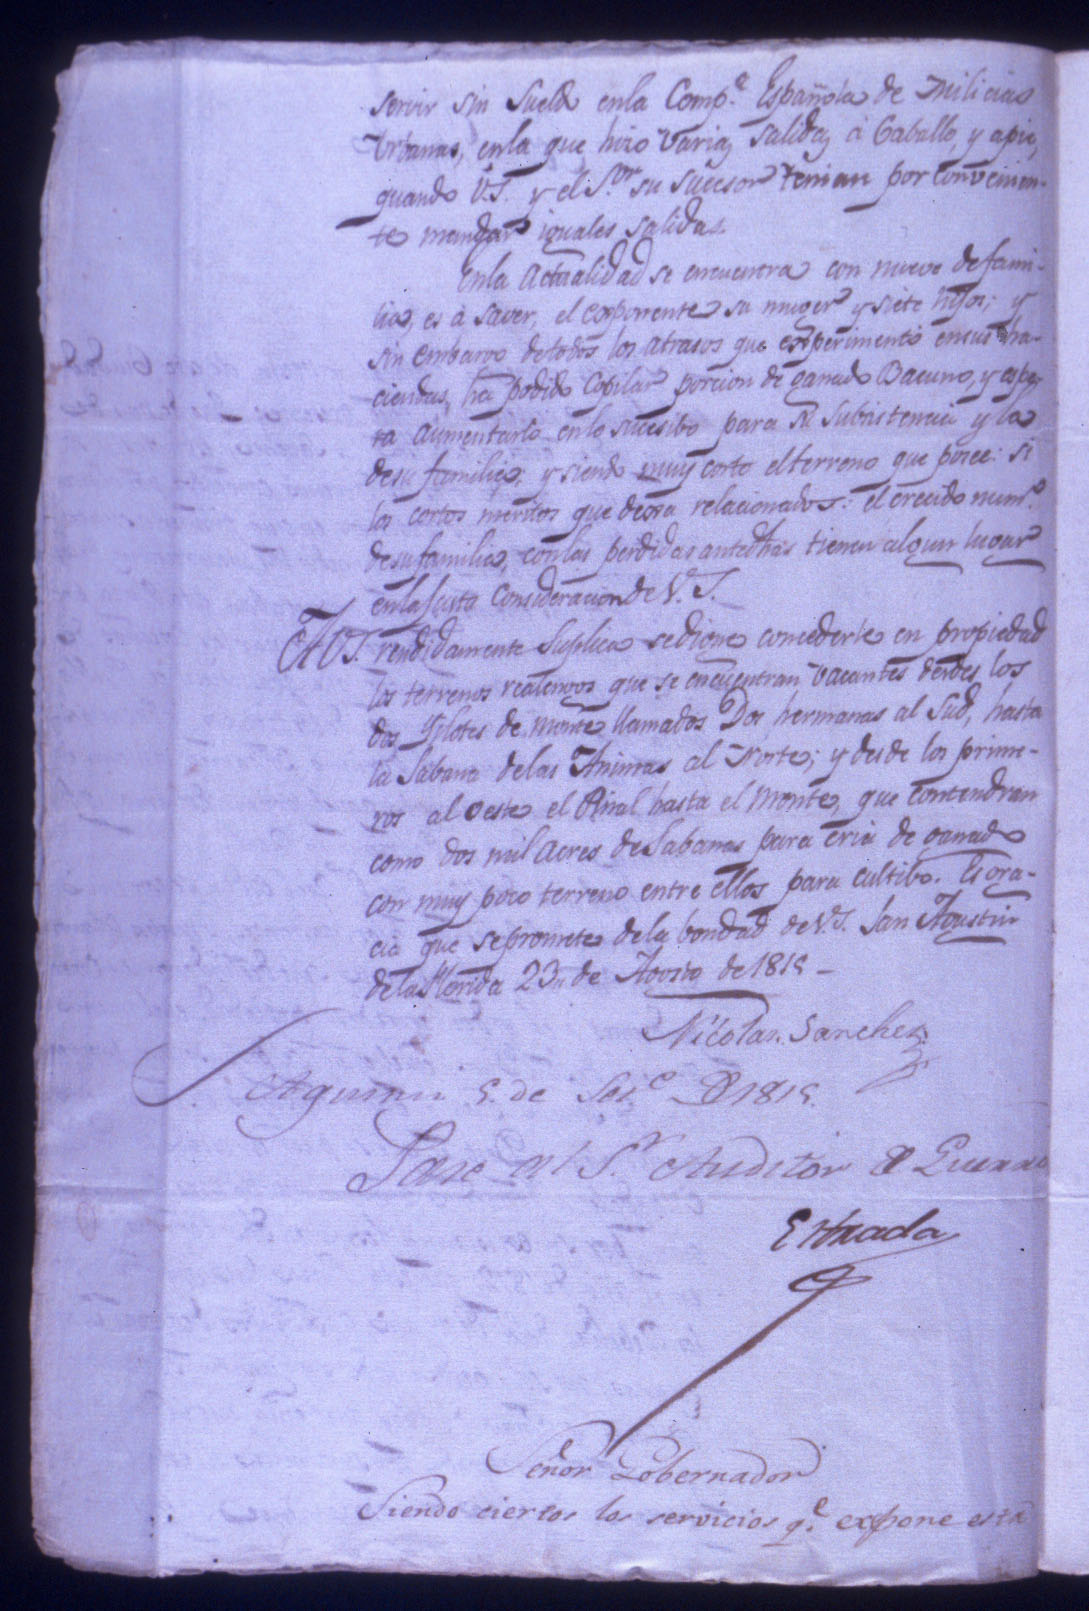 servir sin Sueldo enla Comp.ª Española de Milicias
Urbanas, enla que hizo varias salidas à Caballo, y apie,
quando V.S. y el S.or su Sucesor tenian por convenien-
te mandar iguales salidas.
Enla Actualidad se encuentra con nueve defami-
lia, es à saver, el exponente su muger y siete hijos; y
sin embargo detodos los atrasos que experimentó ensus ha-
ciendas, ha podido Copilar porcion de ganado Bacuno, y espe-
ra aumentarlo enlo sucesibo para su subsistencia y la
desu familia; y siendo muy corto elterreno que posee: si
los cortos meritos que dexa relacionados: el crecido num.º
desufamilia, conlas perdidas antedhas tienen algun lugar
enlaJusta Consideracion de V.S.
A V.S. rendidamente Suplica sedigne concederle en propiedad
los terrenos realengos que se encuentran vacantes desdes los
dos Yslotes de Monte llamados Dos hermanas al Sud, hasta
la Sabana delas Animas al Norte; y desde los prime-
ros al Oeste el Pinal hasta el Monte, que contendran
como dos mil Acres de Sabanas para cria de ganado
con muy poco terreno entre ellos para cultibo. Es gra-
cia que sepromete dela bondad de V.S. San Agustin
dela Florida 23,, de Agosto de 1815 –
Nicolas Sanchez
Agustin 5. de Se.e D 1815.
Pase al S.r Auditor D Guerra
Estrada
Señor Gobernador
Siendo ciertos los servicios q.e expone esta